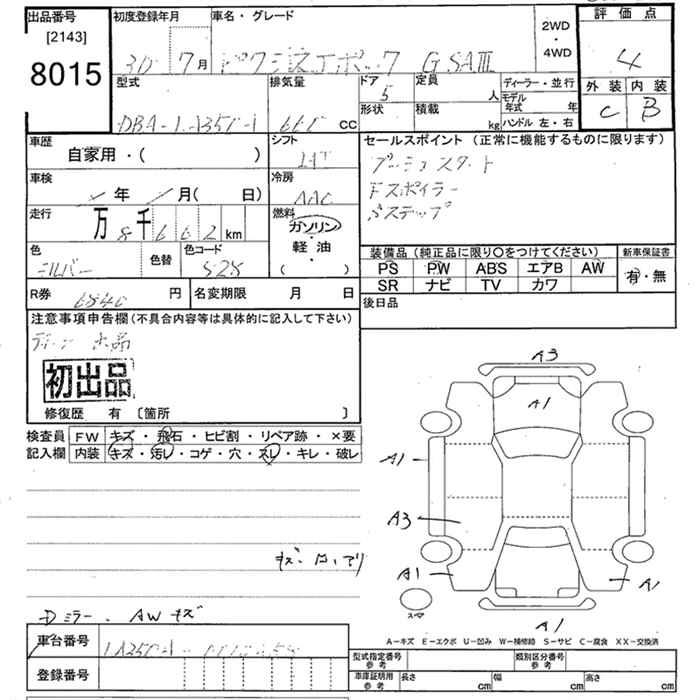 出品番号
[2143]
8015
初度登録年月
30 7月
車名・グレード
2WD
・
4WD
評価点
4
外装 内装
C B
型式
排気量
660 CC
ドア
5
形状
定員
人
積載
kg
ディーラー・並行
モデル
年式 年
ハンドル 左・右
車歴
自家用・( )
シフト
車検
年 月( 日)
冷房
AAC
走行
万 8千 6 6 2 km
燃料
ガソリン・
軽・油
( )
色
シルバー
色替
色コード
S28
R券
円
名変期限 月 日
セールスポイント (正常に機能するものに限ります)
プッシュスタート
スポイラー
ステップ
装備品(純正品に限り〇をつけてください)
新車保証書
PS PW ABS エアB AW
SR ナビ TV カワ
有・無
後日品
注意事項申告欄(不具合内容等は具体的に記入して下さい)
初出品
修復歴 有 〔箇所 〕
検査員
記入欄
FW キズ・飛石・ヒビ割・リペア跡・×要
内装 キズ・汚レ・コゲ・穴・スレ・キレ・破レ
A3
A1
A1
A3
A1
A1
A1
スペア
Dミラー、AWキズ
A-キズ E-エクボ U-凹み W-補修跡 S-サビ C-腐食 XX-交換済
車台番号
登録番号
型式指定番号
参考
類別区分番号
参考
車庫証明用
参考
長さ cm
幅 cm
高さ cm